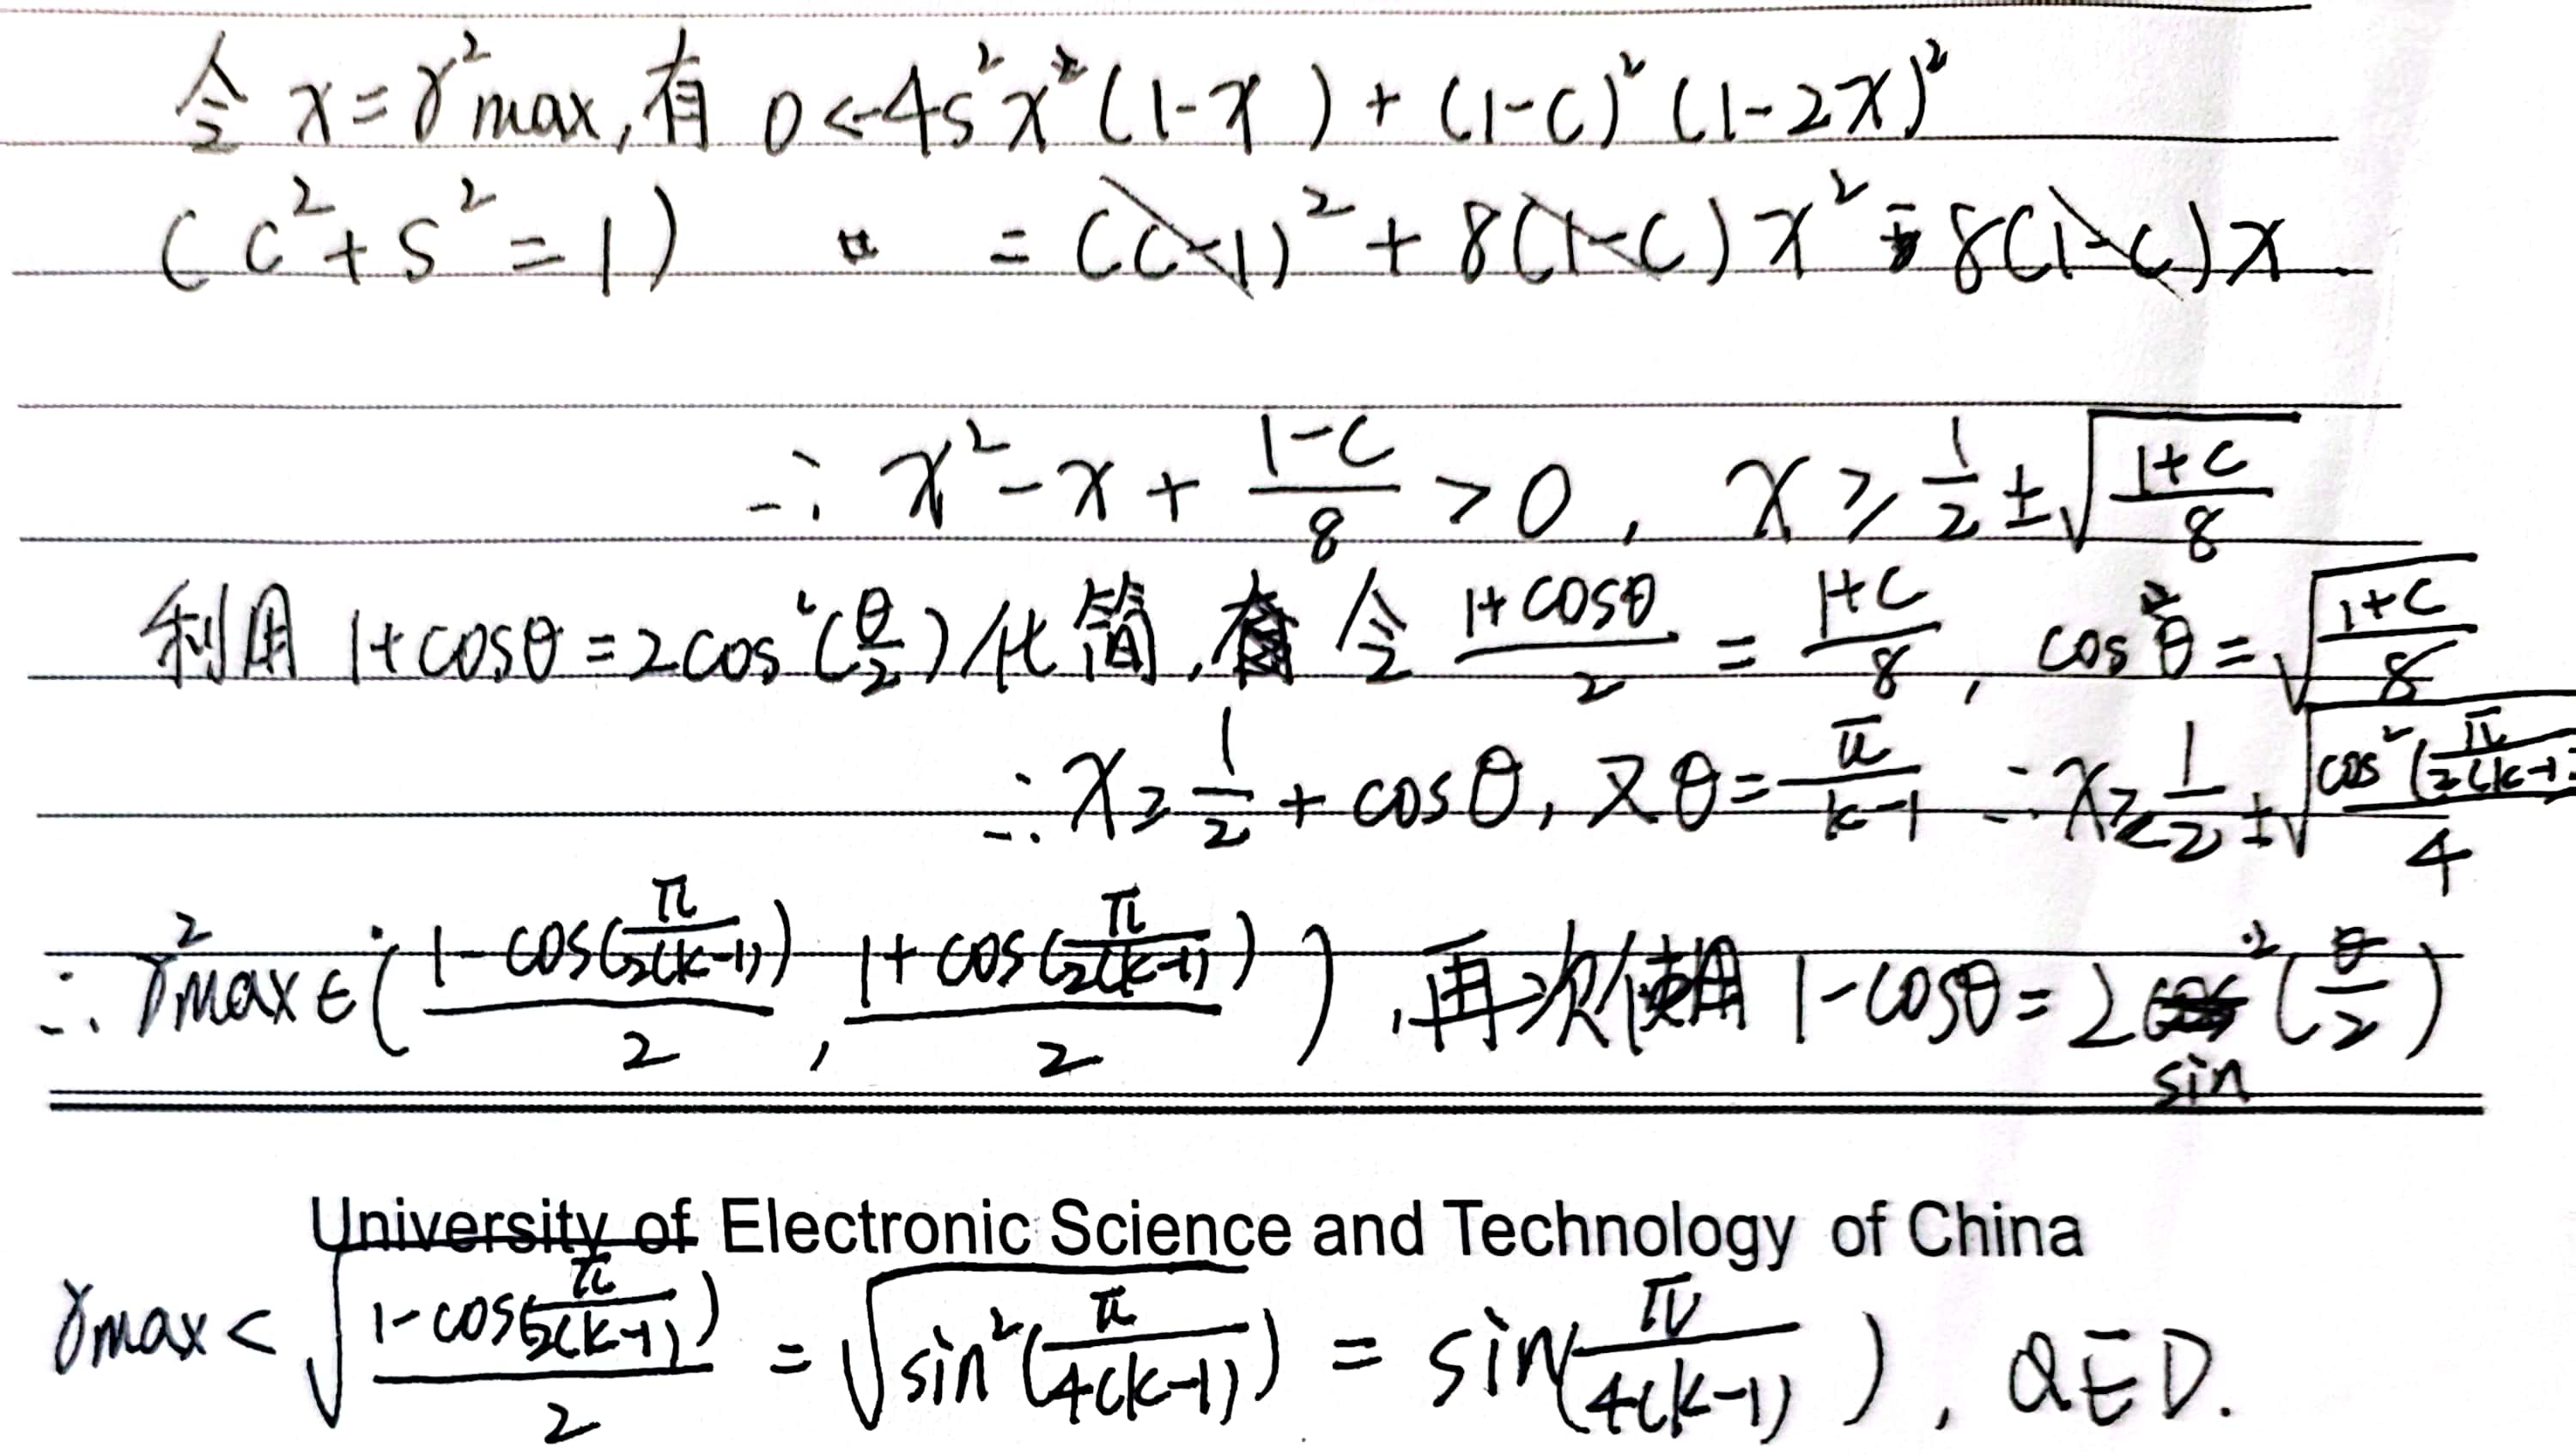 令 x=γ²max,有 0<-4s²x²(1-x)+(1-c)²(1-2x)²
(c²+s²=1) =(c-1)²+8(1-c)x²-8(1-c)x
∴ x²-x+\frac{1-c}{8}>0, x≥\frac{1}{2}±\sqrt{\frac{1+c}{8}}
利用 1+cosθ=2cos²(\frac{θ}{2})化简, 令 \frac{1+cosθ}{2}=\frac{1+c}{8}, cosθ=\sqrt{\frac{1+c}{8}}
∴ x≥\frac{1}{2}+cosθ, 又θ=\frac{π}{k-1} ∴ x≥\frac{1}{2}±\sqrt{\frac{cos²(\frac{π}{2(k-1)})}{4}}
∴ γ²max∈(\frac{1-cos(\frac{π}{2(k-1)})}{2}, \frac{1+cos(\frac{π}{2(k-1)})}{2}),再次使用 1-cosθ=2sin²(\frac{θ}{2})
University of Electronic Science and Technology of China
γmax<\sqrt{\frac{1-cos(\frac{π}{2(k-1)})}{2}}=\sqrt{sin²(\frac{π}{4(k-1)})}=sin(\frac{π}{4(k-1)}), QED.